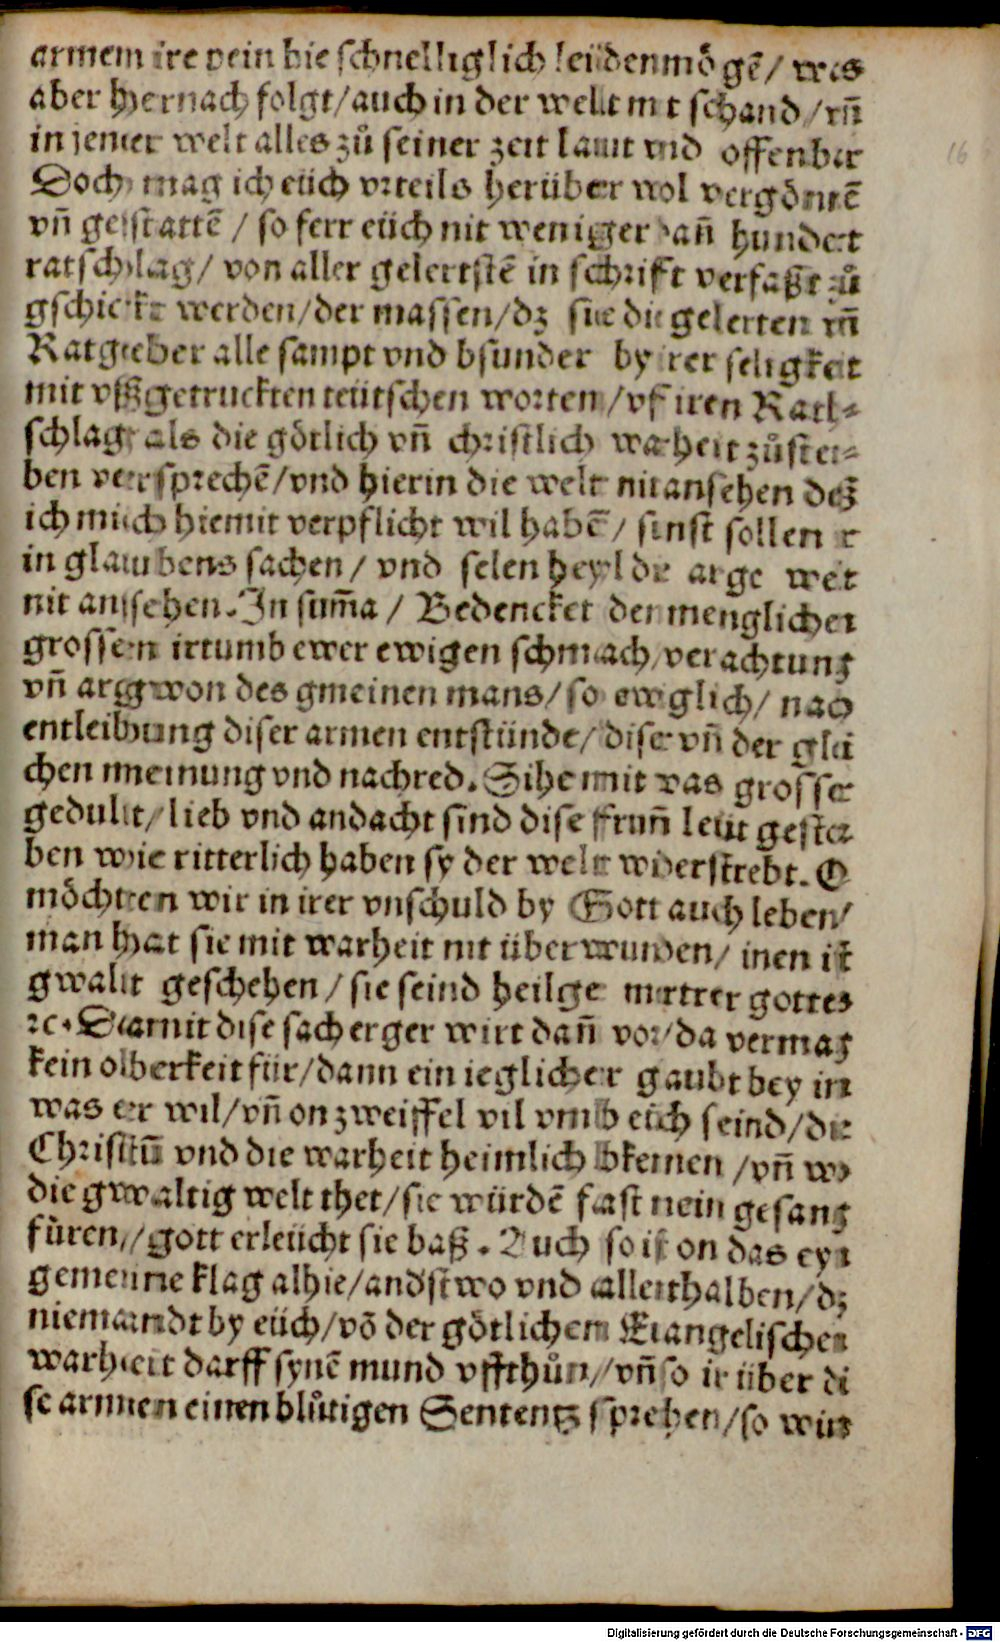 armen ire pein hie schnelliglich leidenmögē/ was
aber hernach folgt/auch in der welt mit schand/vñ
in jener welt alles zů seiner zeit laut vnd offenbar
Doch mag ich eüch vrteils herüber wol vergönnē
vñ gestattē / so ferr eüch nit weniger dañ hundert
ratschlag/ von aller gelertstē in schrifft verfaßt zů
gschickt werden/der massen/dz sie die gelerten vñ
Ratgeber alle sampt vnd bsunder by irer seligkeit
mit vßgetruckten teütschen worten/vf iren Rath-
schlag als die götlich vñ christlich warheit zůster-
ben versprechē/vnd hierin die welt nit ansehen deß
ich mich hiemit verpflicht wil habē/ sunst sollen ir
in glaubens sachen/ vnd selen heyl die arge welt
nit ansehen. In sum̄a / Bedencket den menglichen
grossen irtumb ewer ewigen schmach/verachtung
vñ argwon des gmeinen mans/so ewiglich/ nach
entleibung diser armen entstünde/ dise vñ der glei
chen meinung vnd nachred. Sihe mit was grosser
gedult/lieb vnd andacht sind dise frum̄ leüt gestor
ben wie ritterlich haben sy der welt widerstrebt. O
möchten wir in irer vnschuld by Gott auch leben/
man hat sie mit warheit nit überwunden/ inen ist
gwalt geschehen/ sie seind heilge martrer gottes
ꝛc. Damit dise sach erger wirt dañ vor/da vermag
kein oberkeit für/dann ein ieglicher gaubt bey im
was er wil/vñ on zweiffel vil vmb eüch seind/die
Christū vnd die warheit heimlich bkennen /vñ wo
die gwaltig welt thet/sie würdē fast nein gesang
füren//gott erleücht sie baß. Auch so ist on das eyn
gemeine klag alhie/andstwo vnd allenthalben/dz
niemandt by eüch/vō der götlichen Euangelischen
warheit darff synē mund vffthůn/vñ so ir über di
se armen einen blůtigen Sententz sprehen/so wirt
16
Digitalisierung gefördert durch die Deutsche Forschungsgemeinschaft - DFG